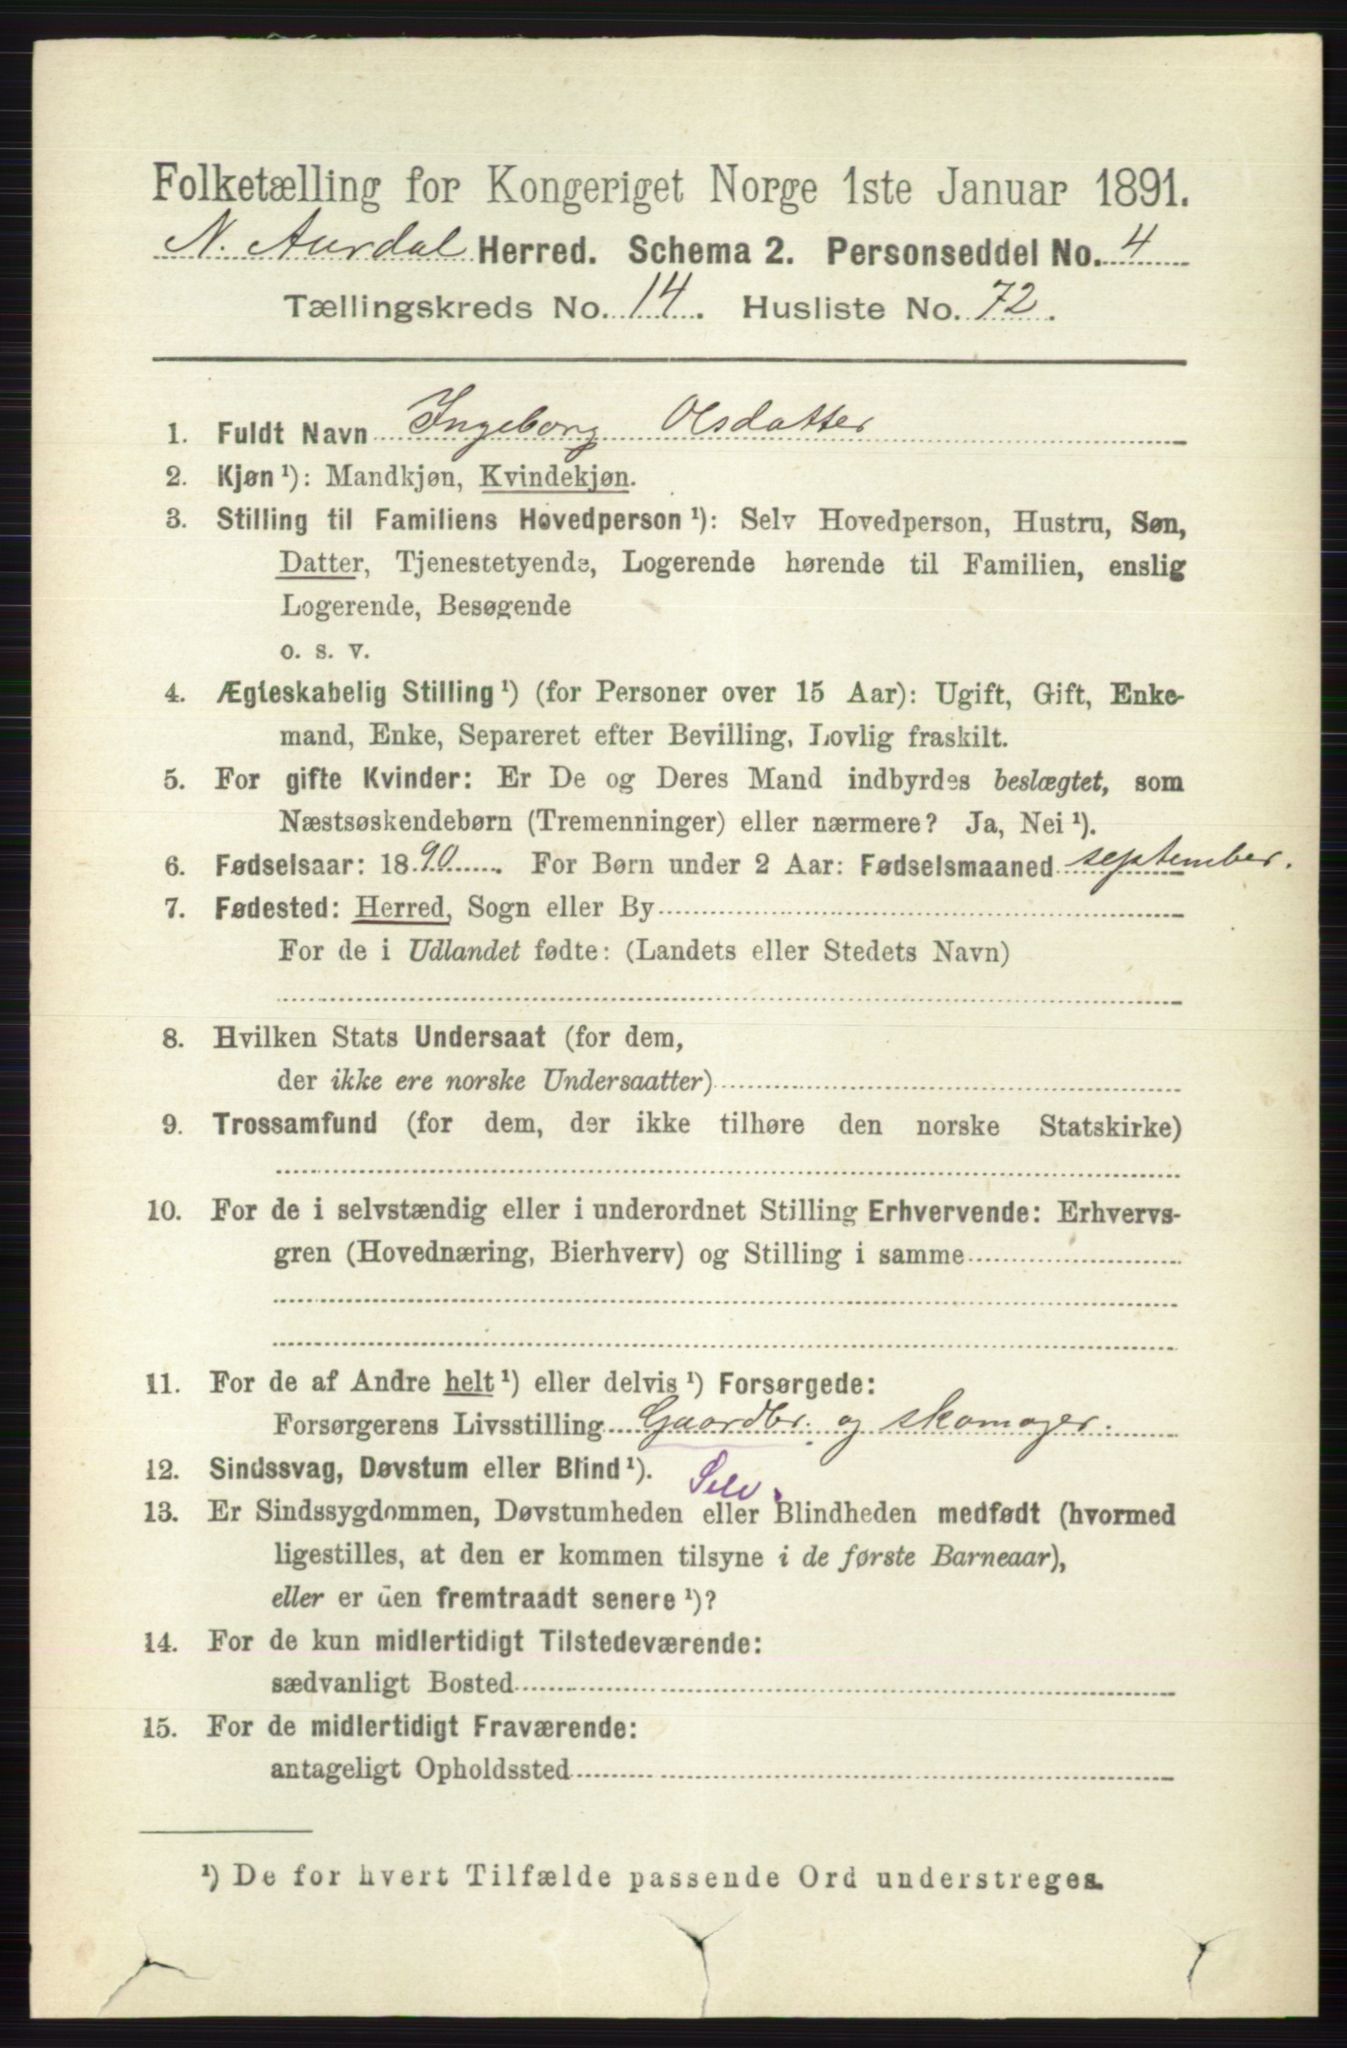 Folketælling for Kongeriget Norge 1ste Januar 1891.
N. Aurdal Herred. Schema 2. Personseddel No. 4
Tællingskreds No. 14. Husliste No. 72.
1. Fuldt Navn Ingeborg Olsdatter
2. Kjøn ¹): Mandkjøn, Kvindekjøn.
3. Stilling til Familiens Hovedperson ¹): Selv Hovedperson, Hustru, Søn,
Datter, Tjenestetyende, Logerende hørende til Familien, enslig
Logerende, Besøgende
o. s. v.
4. Ægteskabelig Stilling ¹) (for Personer over 15 Aar): Ugift, Gift, Enke-
mand, Enke, Separeret efter Bevilling, Lovlig fraskilt.
5. For gifte Kvinder: Er De og Deres Mand indbyrdes beslægtet, som
Næstsøskendebørn (Tremenninger) eller nærmere? Ja, Nei ¹).
6. Fødselsaar: 1890. For Børn under 2 Aar: Fødselsmaaned september.
7. Fødested: Herred, Sogn eller By
For de i Udlandet fødte: (Landets eller Stedets Navn)
8. Hvilken Stats Undersaat (for dem,
der ikke ere norske Undersaatter)
9. Trossamfund (for dem, der ikke tilhøre den norske Statskirke)
10. For de i selvstændig eller i underordnet Stilling Erhvervende: Erhvervs-
gren (Hovednæring, Bierhverv) og Stilling i samme
11. For de af Andre helt ¹) eller delvis ¹) Forsørgede:
Forsørgerens Livsstilling Gaardbr. og skomager.
12. Sindssvag, Døvstum eller Blind ¹). Selv.
13. Er Sindssygdommen, Døvstumheden eller Blindheden medfødt (hvormed
ligestilles, at den er kommen tilsyne i de første Barneaar),
eller er den fremtraadt senere ¹)?
14. For de kun midlertidigt Tilstedeværende:
sædvanligt Bosted
15. For de midlertidigt Fraværende:
antageligt Opholdssted
¹) De for hvert Tilfælde passende Ord understreges.